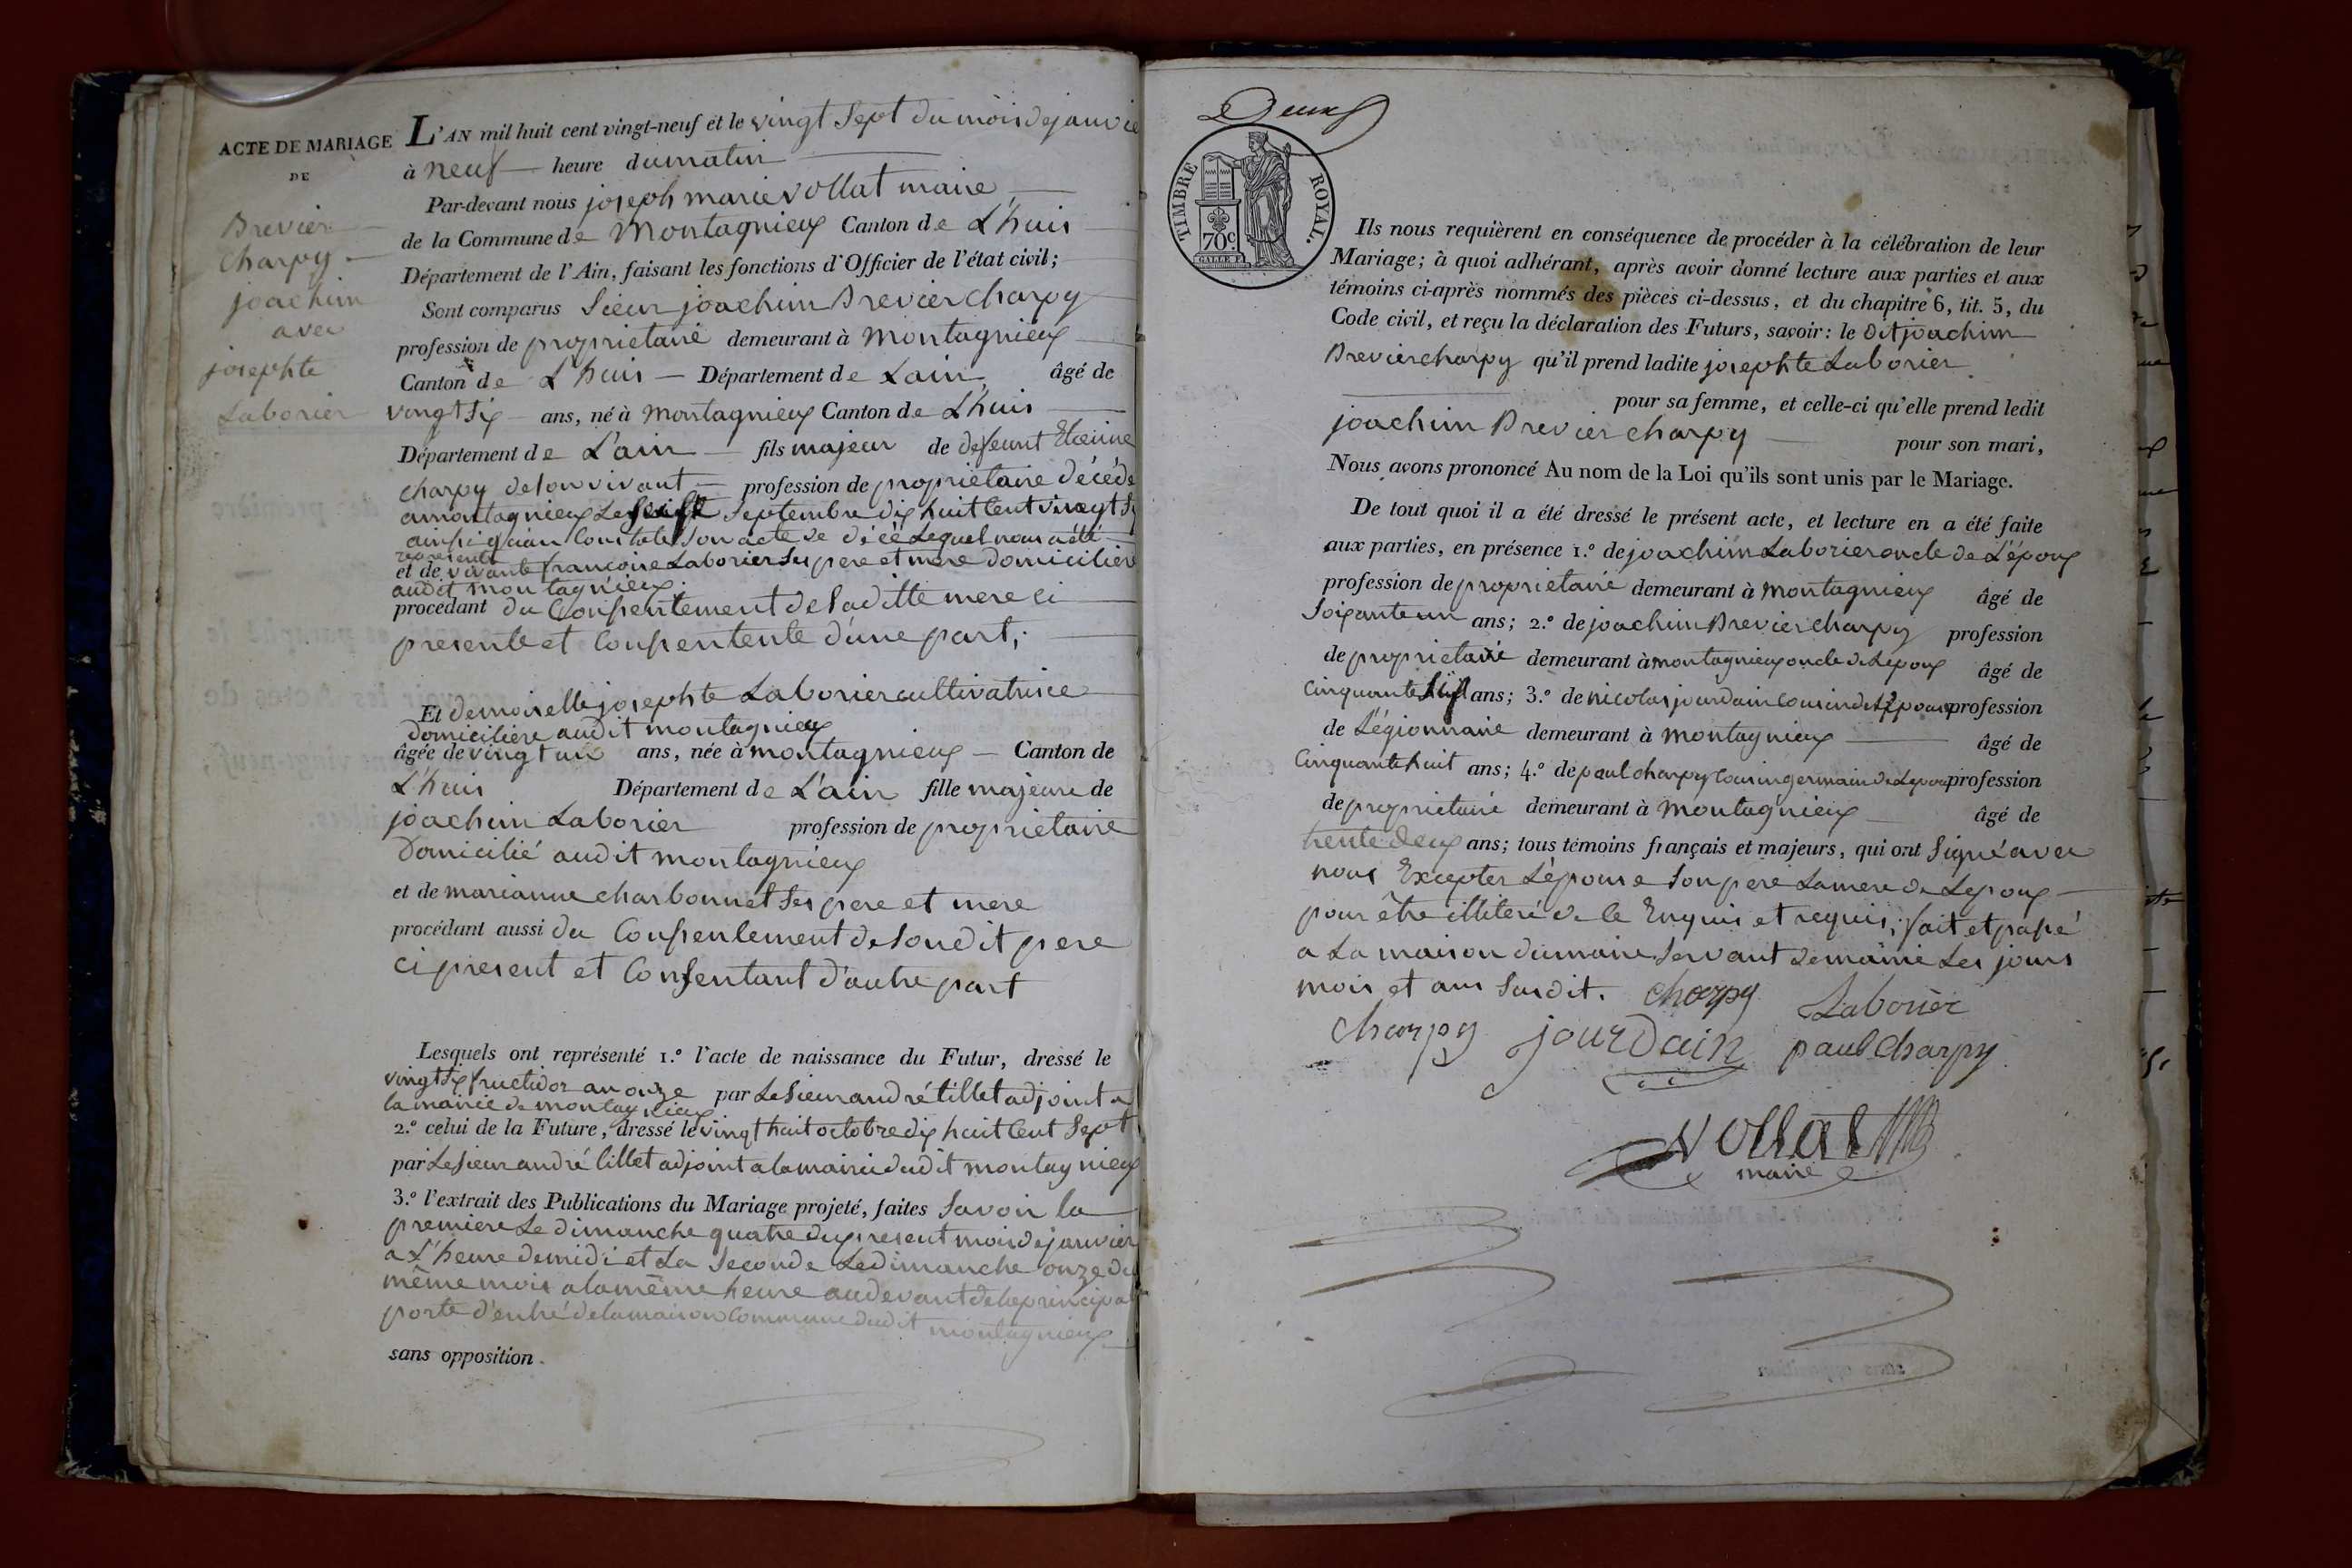 ACTE DE MARIAGE
DE
Brevier
Charpy
joachim
avec
josephte
Laborier
L'AN mil huit cent vingt-neuf et le vingt Sept du mois de janvie
à neuf heure du matin
Par-devant nous joseph marie vollat maire
de la Commune de Montagnieux Canton de L'huis
Département de l'Ain, faisant les fonctions d'Officier de l'état civil;
Sont comparus Sieur joachim Brevier Charpy
profession de proprietaire demeurant à Montagnieux
Canton de L'huis Département de Lain âgé de
vingt Six ans, né à Montagnieux Canton de L'huis
Département de L'ain fils majeur de defeunt Etienne
charpy de son vivant profession de proprietaire décédé
a montagnieux Le Septembre dix huit Cent vingt
ainsi qu'ain Constate Son acte de décè Lequel nous a été
representé
et de vivante francoise Laborier Ses pere et mere domiciliere
audit montagnieux
procédant du Consentement de Saditte mere ci
presente et Consentente d'une part;
Et demoiselle josephte Laborier cultivatrice
domiciliere audit montagnieux
âgée de vingt un ans, née à montagnieux Canton de
L'huis Département de L'ain fille majeure de
joachim Laborier profession de proprietaire
Domicilié audit montagnieux
et de marianne charbonnet Ses pere et mere
procédant aussi du Consentement de Soudit pere
ci present et Consentant d'autre part
Lesquels ont représenté 1.º l'acte de naissance du Futur, dressé le
vingt Six fructidor an onze par Le Sieur andré tillet adjoint a
la mairie de montagnieux
2.º celui de la Future, dressé le vingt huit octobre dix huit Cent Sept
par Le Sieur andré tillet adjoint a la mairie dudit montagnieux
3.º l'extrait des Publications du Mariage projeté, faites Savoir la
premiere Le dimanche quatre du present mois de janvier
a L'heure de midi et La Seconde Le dimanche onze du
même mois a la même heure au devant de la principa
porte d'entré de la maison Commune dudit montagnieux
sans opposition.
Deux
TIMBRE ROYAL.
70c
Ils nous requièrent en conséquence de procéder à la célébration de leur
Mariage; à quoi adhérant, après avoir donné lecture aux parties et aux
témoins ci-après nommés des pièces ci-dessus, et du chapitre 6, tit. 5, du
Code civil, et reçu la déclaration des Futurs, savoir: le dit joachim
Brevier charpy qu'il prend ladite josephte Laborier
pour sa femme, et celle-ci qu'elle prend ledit
joachim Brevier charpy pour son mari,
Nous avons prononcé Au nom de la Loi qu'ils sont unis par le Mariage.
De tout quoi il a été dressé le présent acte, et lecture en a été faite
aux parties, en présence 1.º de joachim Laborier oncle de L'époux
profession de proprietaire demeurant à Montagnieux âgé de
Soixante un ans; 2.º de joachim Brevier charpy profession
de proprietaire demeurant à montagnieux oncle de Lepoux âgé de
Cinquante ans; 3.º de nicolas jourdain Cousin de profession
de Légionnaire demeurant à montagnieux âgé de
Cinquante huit ans; 4.º de paul charpy Cousin germain de Lepoux profession
de proprietaire demeurant à Montagnieux âgé de
trente deux ans; tous témoins français et majeurs, qui ont Signé avec
nous Excepter Lépouse Son pere La mere de Lepoux
pour être illiteré de le Enquis et requis; fait et passé
a La maison du maire Servant de mairie Les jours
mois et ans Susdit. charpy Laborier
charpy jourdain paul charpy
Vollat
maire